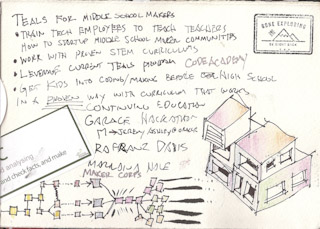 TEALS FOR MIDDLE SCHOOL MAKERS
• TRAIN TECH EMPLOYEES TO TEACH TEACHERS
HOW TO STARTUP MIDDLE SCHOOL MAKER COMMUNITIES
• WORK WITH PROVEN STEM CURRICULUMS
• LEVERAGE CURRENT TEALS PROGRAM CODEACADEMY
• GET KIDS INTO CODING/MAKING BEFORE HIGH SCHOOL
IN A PROVEN WAY WITH CURRICULUM THAT WORKS
CONTINUING EDUCATION
GARAGE HACKATHON
RAFRANZ DAVIS
MAKER CORPS
GONE EXPLORING
analysing
and check facts, and make